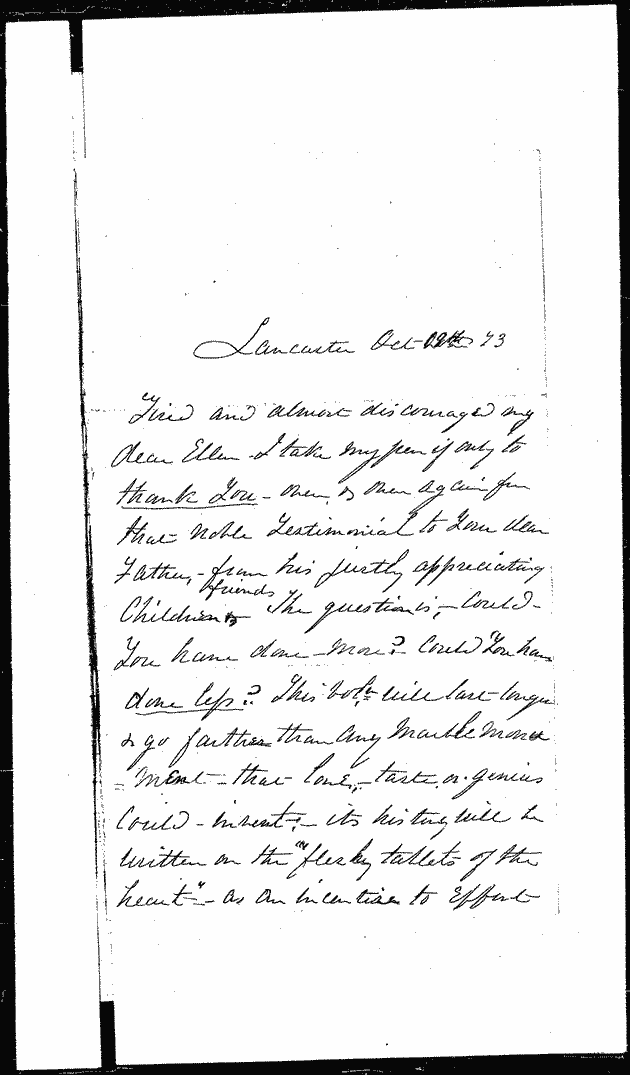 Lancaster Oct 73
Tired and almost discouraged my
dear Ellen - I take my pen if only to
thank You - over & over again for
that noble Testimonial to Your dear
Father, - from his justly appreciating
friends
Children & The question is, - Could -
You have done - more? Could You have
done less? This vol. will last longer
& go farther than any Marble Monu
= ment - that love, - taste, or genius
Could - invent; - its history will be
written on the "fleshy tablets of the
heart" - as an incentive to Effort